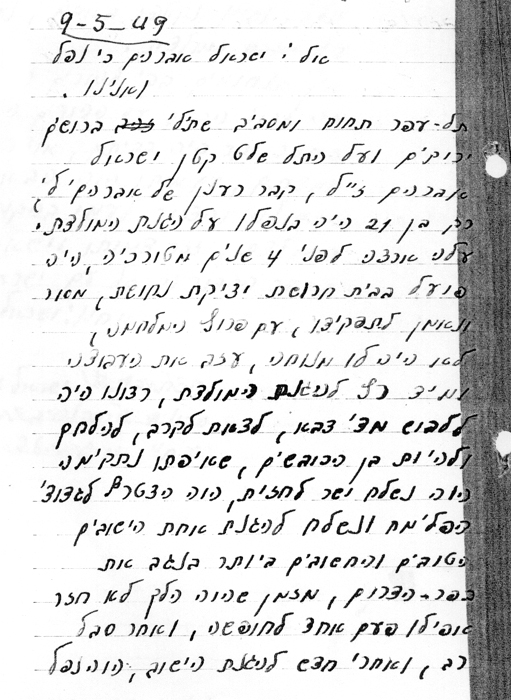 9-5-49
אל י׳ ישראל אוברהים כי נפל
ואנינו.
תל-עפר תחום ומסביב שתלי ברושים
ירוקים ועל התל שלט קטן ישראל
אוברהים ז״ל, קבר רענן של אוברהים׳לי;
רק בן 21 היה בנפלו על הגנת המולדת.
עלה ארצה לפני 4 שנים מטורכיה, היה
פועל בבית חרושת יציקת נחושת, מסור
ונאמן לתפקידו, עם פרוץ המלחמה,
לא היה לו מנוחה, עזב את העבודה
ומיד רץ להגנת המולדת, רצונו היה
ללבוש מדי צבא, לצאת לקרב, להלחם
ולהיות בן הכובשים, שאיפתו נתקימה
הוה נשלח ישר לחזית, הוה הצטרף לגדודי
הפלימח ונשלח להגנת אחת הישובים
הטובים והחשובים ביותר בנגב את
כפר-הדרום, מזמן שהוה הלך לא חזר
אפילו פעם אחד לחופשה, ואחר סבל
רב, ואחרי חדש להגנת הישוב, הוה נפל